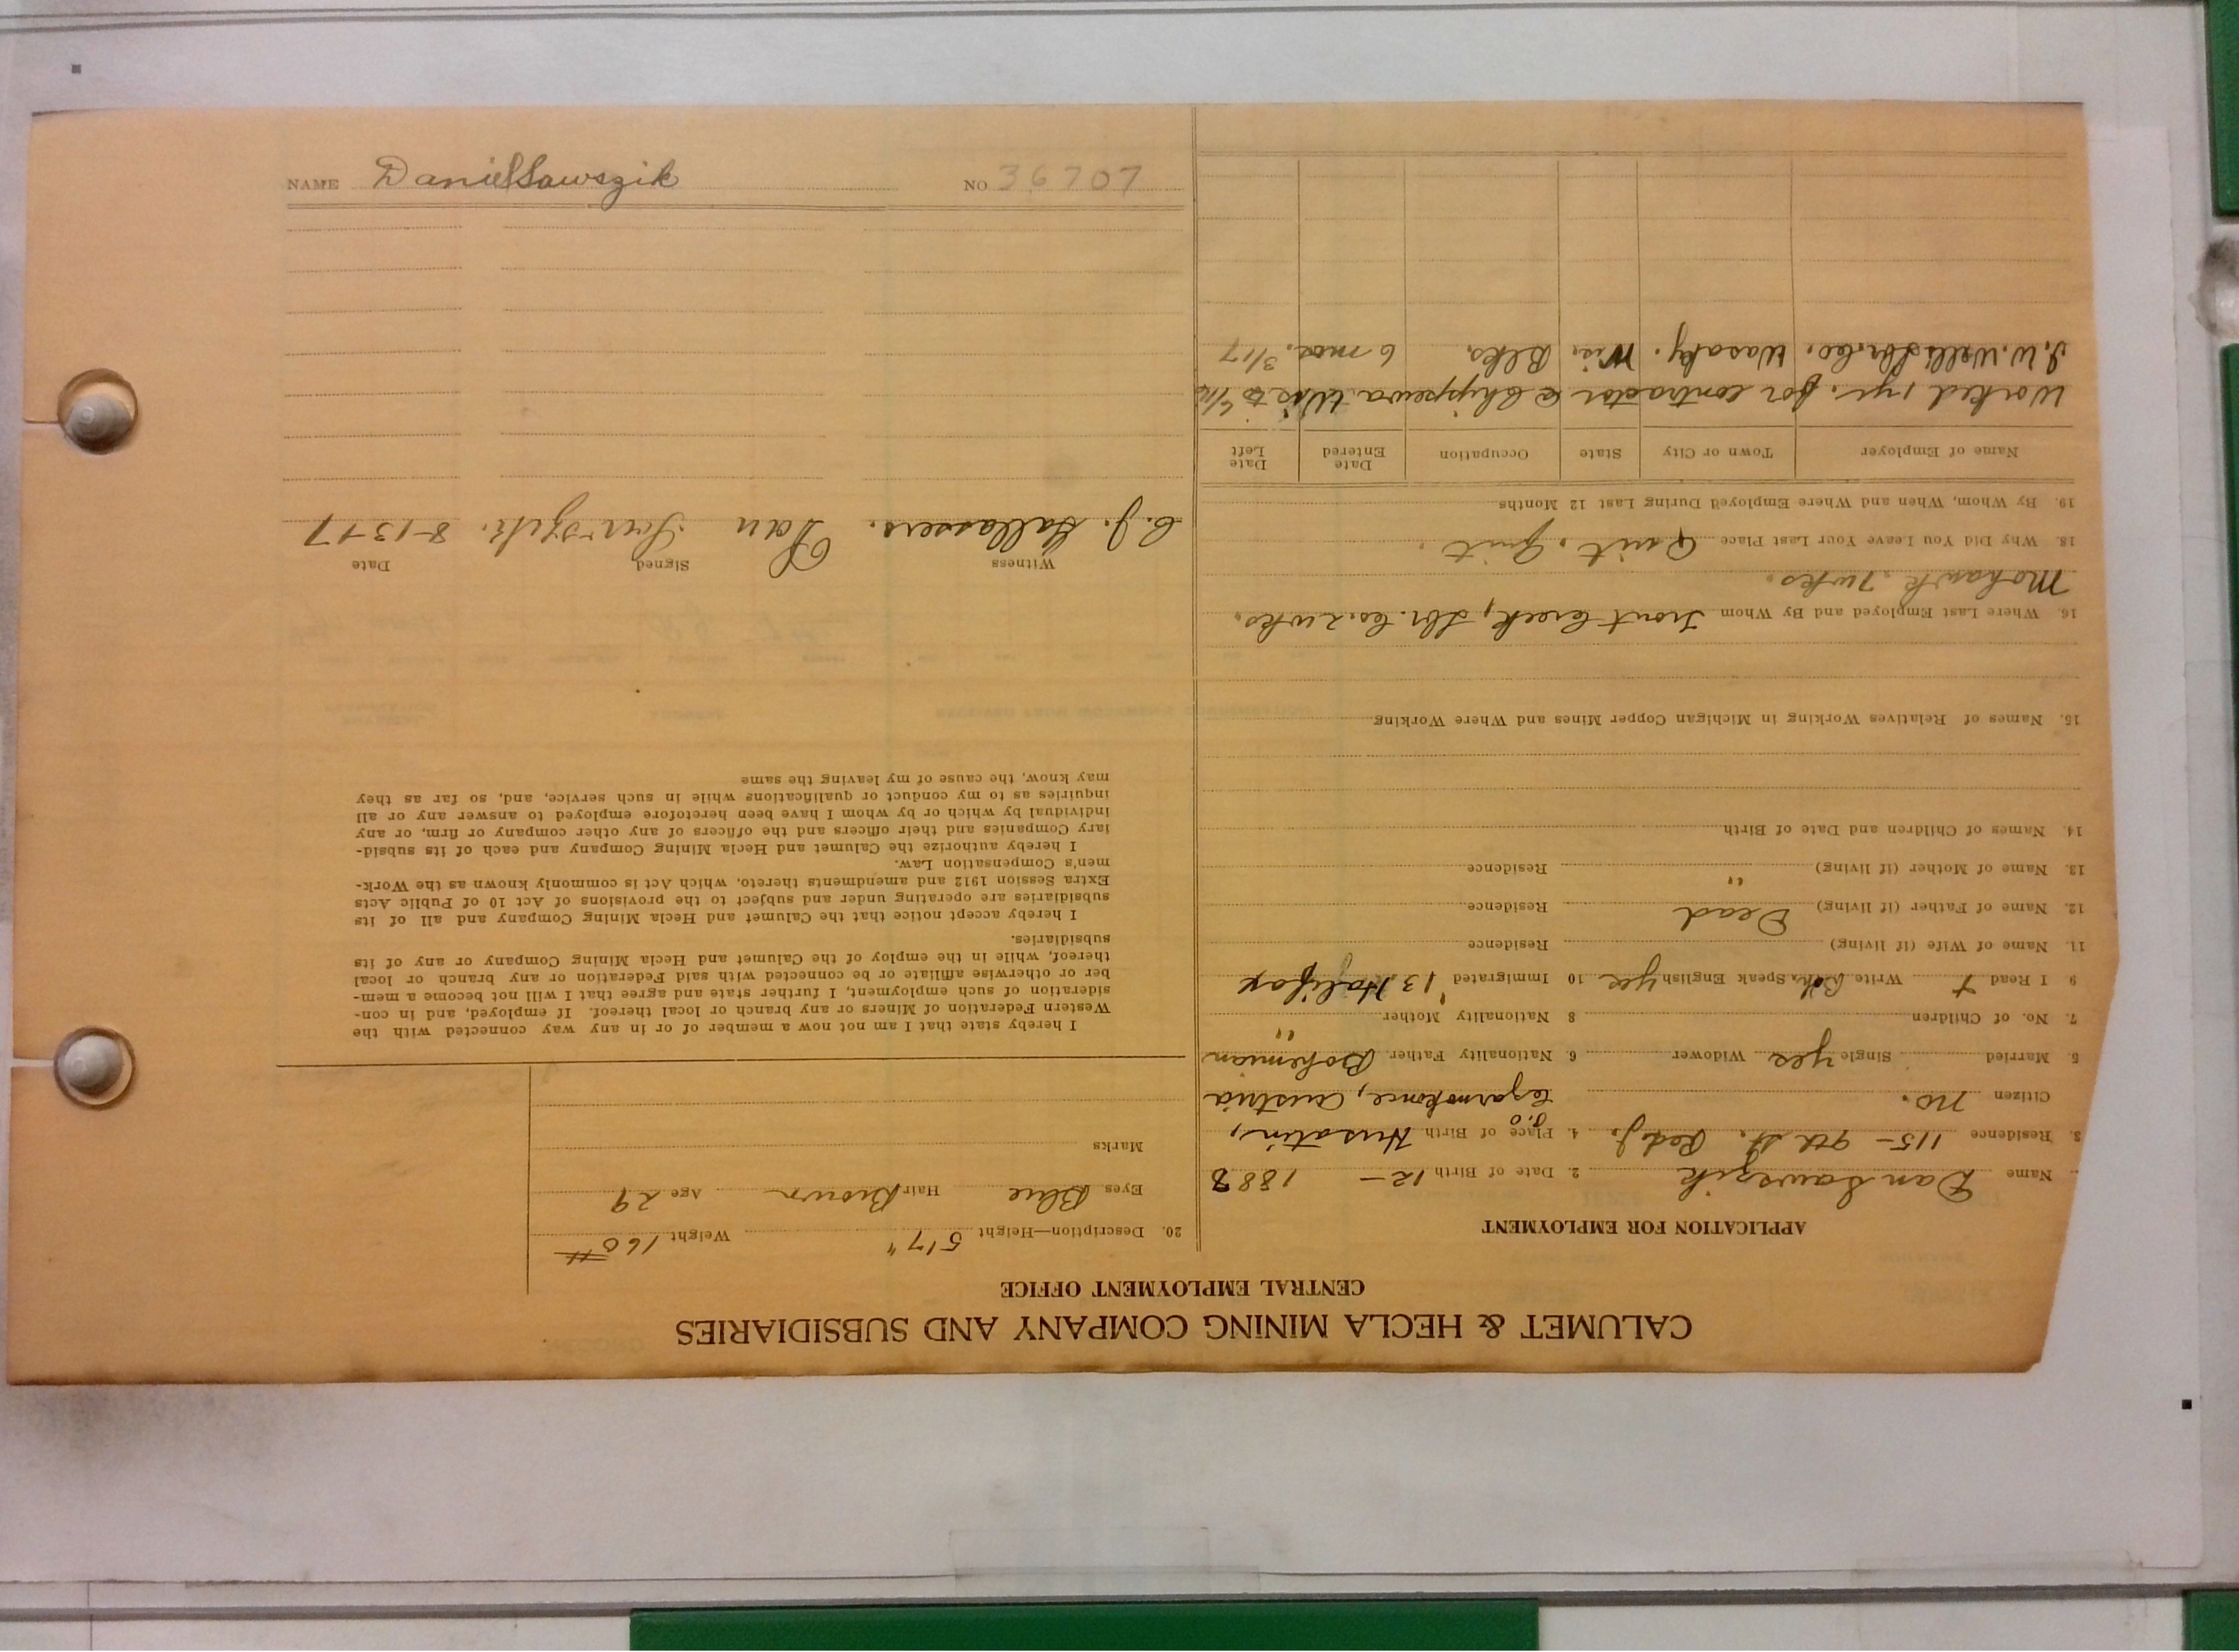 NAME Daniel Sawszik NO 36707
CALUMET & HECLA MINING COMPANY AND SUBSIDIARIES
CENTRAL EMPLOYMENT OFFICE
APPLICATION FOR EMPLOYMENT
Name Dan Sawszik 2. Date of Birth 12 - 1888
3. Residence 115 - 9th St. Red J. 4. Place of Birth Husatin,
P.O.
Citizen no. Austria
5. Married Single yes Widower 6. Nationality Father Bohemian
7. No. of Children 8 Nationality Mother "
9 I Read + Write Boh. Speak English yes 10 Immigrated '13 Halifax
11. Name of Wife (if living) Residence
12. Name of Father (if living) Dead Residence
13. Name of Mother (if living) " Residence
14. Names of Children and Date of Birth
15. Names of Relatives Working in Michigan Copper Mines and Where Working
16. Where Last Employed and By Whom Trout Creek, Lbr. Co. 2 wks.
Mohawk. 7wks.
18. Why Did You Leave Your Last Place Quit. Quit.
19. By Whom, When and Where Employed During Last 12 Months
Name of Employer Town or City State Occupation Date Entered Date Left
Worked 1 yr. for contractor @ Chippewa Wis to 6/16
J.W. Wells Lbr. Co. Wis. 6 mos. 3/17
20. Description—Height 5'7" Weight 160 #
Eyes Blue Hair Brown Age 29
Marks
I hereby state that I am not now a member of or in any way connected with the
Western Federation of Miners or any branch or local thereof. If employed, and in con-
sideration of such employment, I further state and agree that I will not become a mem-
ber or otherwise affiliate or be connected with said Federation or any branch or local
thereof, while in the employ of the Calumet and Hecla Mining Company or any of its
subsidiaries.
I hereby accept notice that the Calumet and Hecla Mining Company and all of its
subsidiaries are operating under and subject to the provisions of Act 10 of Public Acts
Extra Session 1912 and amendments thereto, which Act is commonly known as the Work-
men's Compensation Law.
I hereby authorize the Calumet and Hecla Mining Company and each of its subsid-
iary Companies and their officers and the officers of any other company or firm, or any
individual by which or by whom I have been heretofore employed to answer any or all
inquiries as to my conduct or qualifications while in such service, and, so far as they
may know, the cause of my leaving the same
Witness Signed Date
C.J. Dan Sawszik. 8-13-17